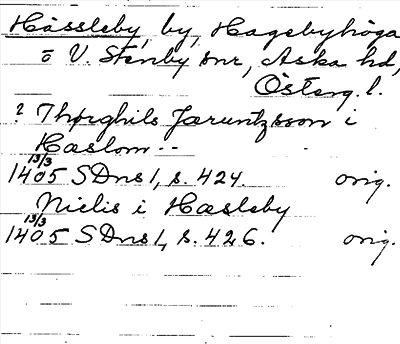 Hässleby, by, Hagebyhöga
o V. Stenby snr, Aska hd,
Österg. l.
? Thorghils Jæruntzsson i
Haslom --
13/3
1405 SDns 1, s. 424. orig.
Nielis i Hæsleby
13/3
1405 SDns 1, s. 426. orig.